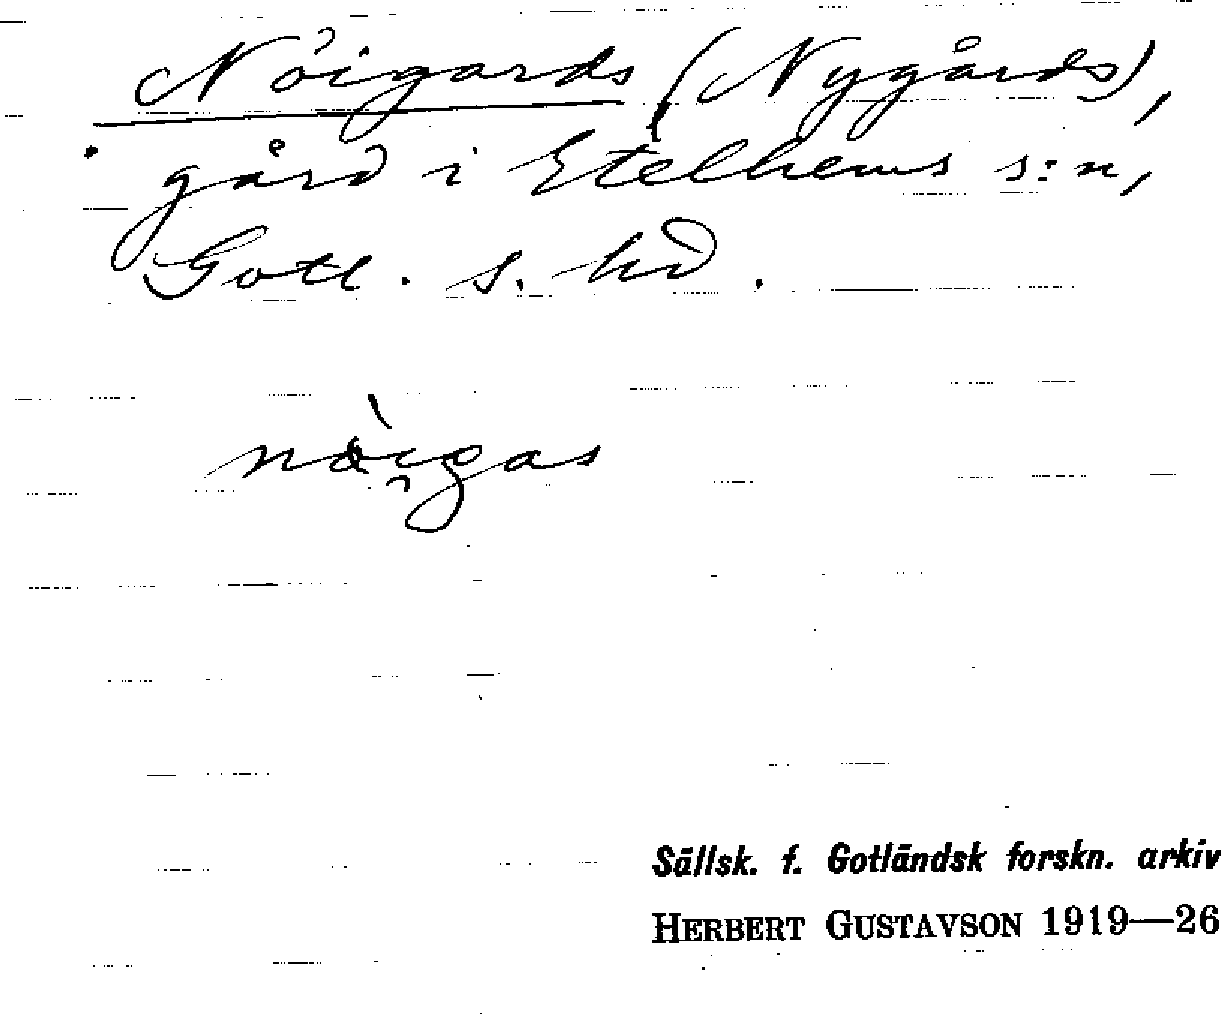 Nöigards (Nygårds),
gård i Etelhems s:n,
Gotl. s. hd.
nòi̯gas
Sällsk. f. Gotländsk forskn. arkiv
HERBERT GUSTAVSON 1919—26